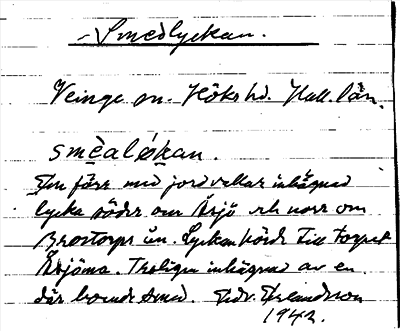 Smedlyckan.
Veinge sn. Höks hd. Hall. län.
smèaløkan.
En förr med jordvallar inhägnad
lycka söder om Årsjö och norr om
Brostorps ån. Lyckan hörde till torpet
Årsjöma. Troligen inhägnad av en
där boende smed. Edv. Erlandsson
1942.